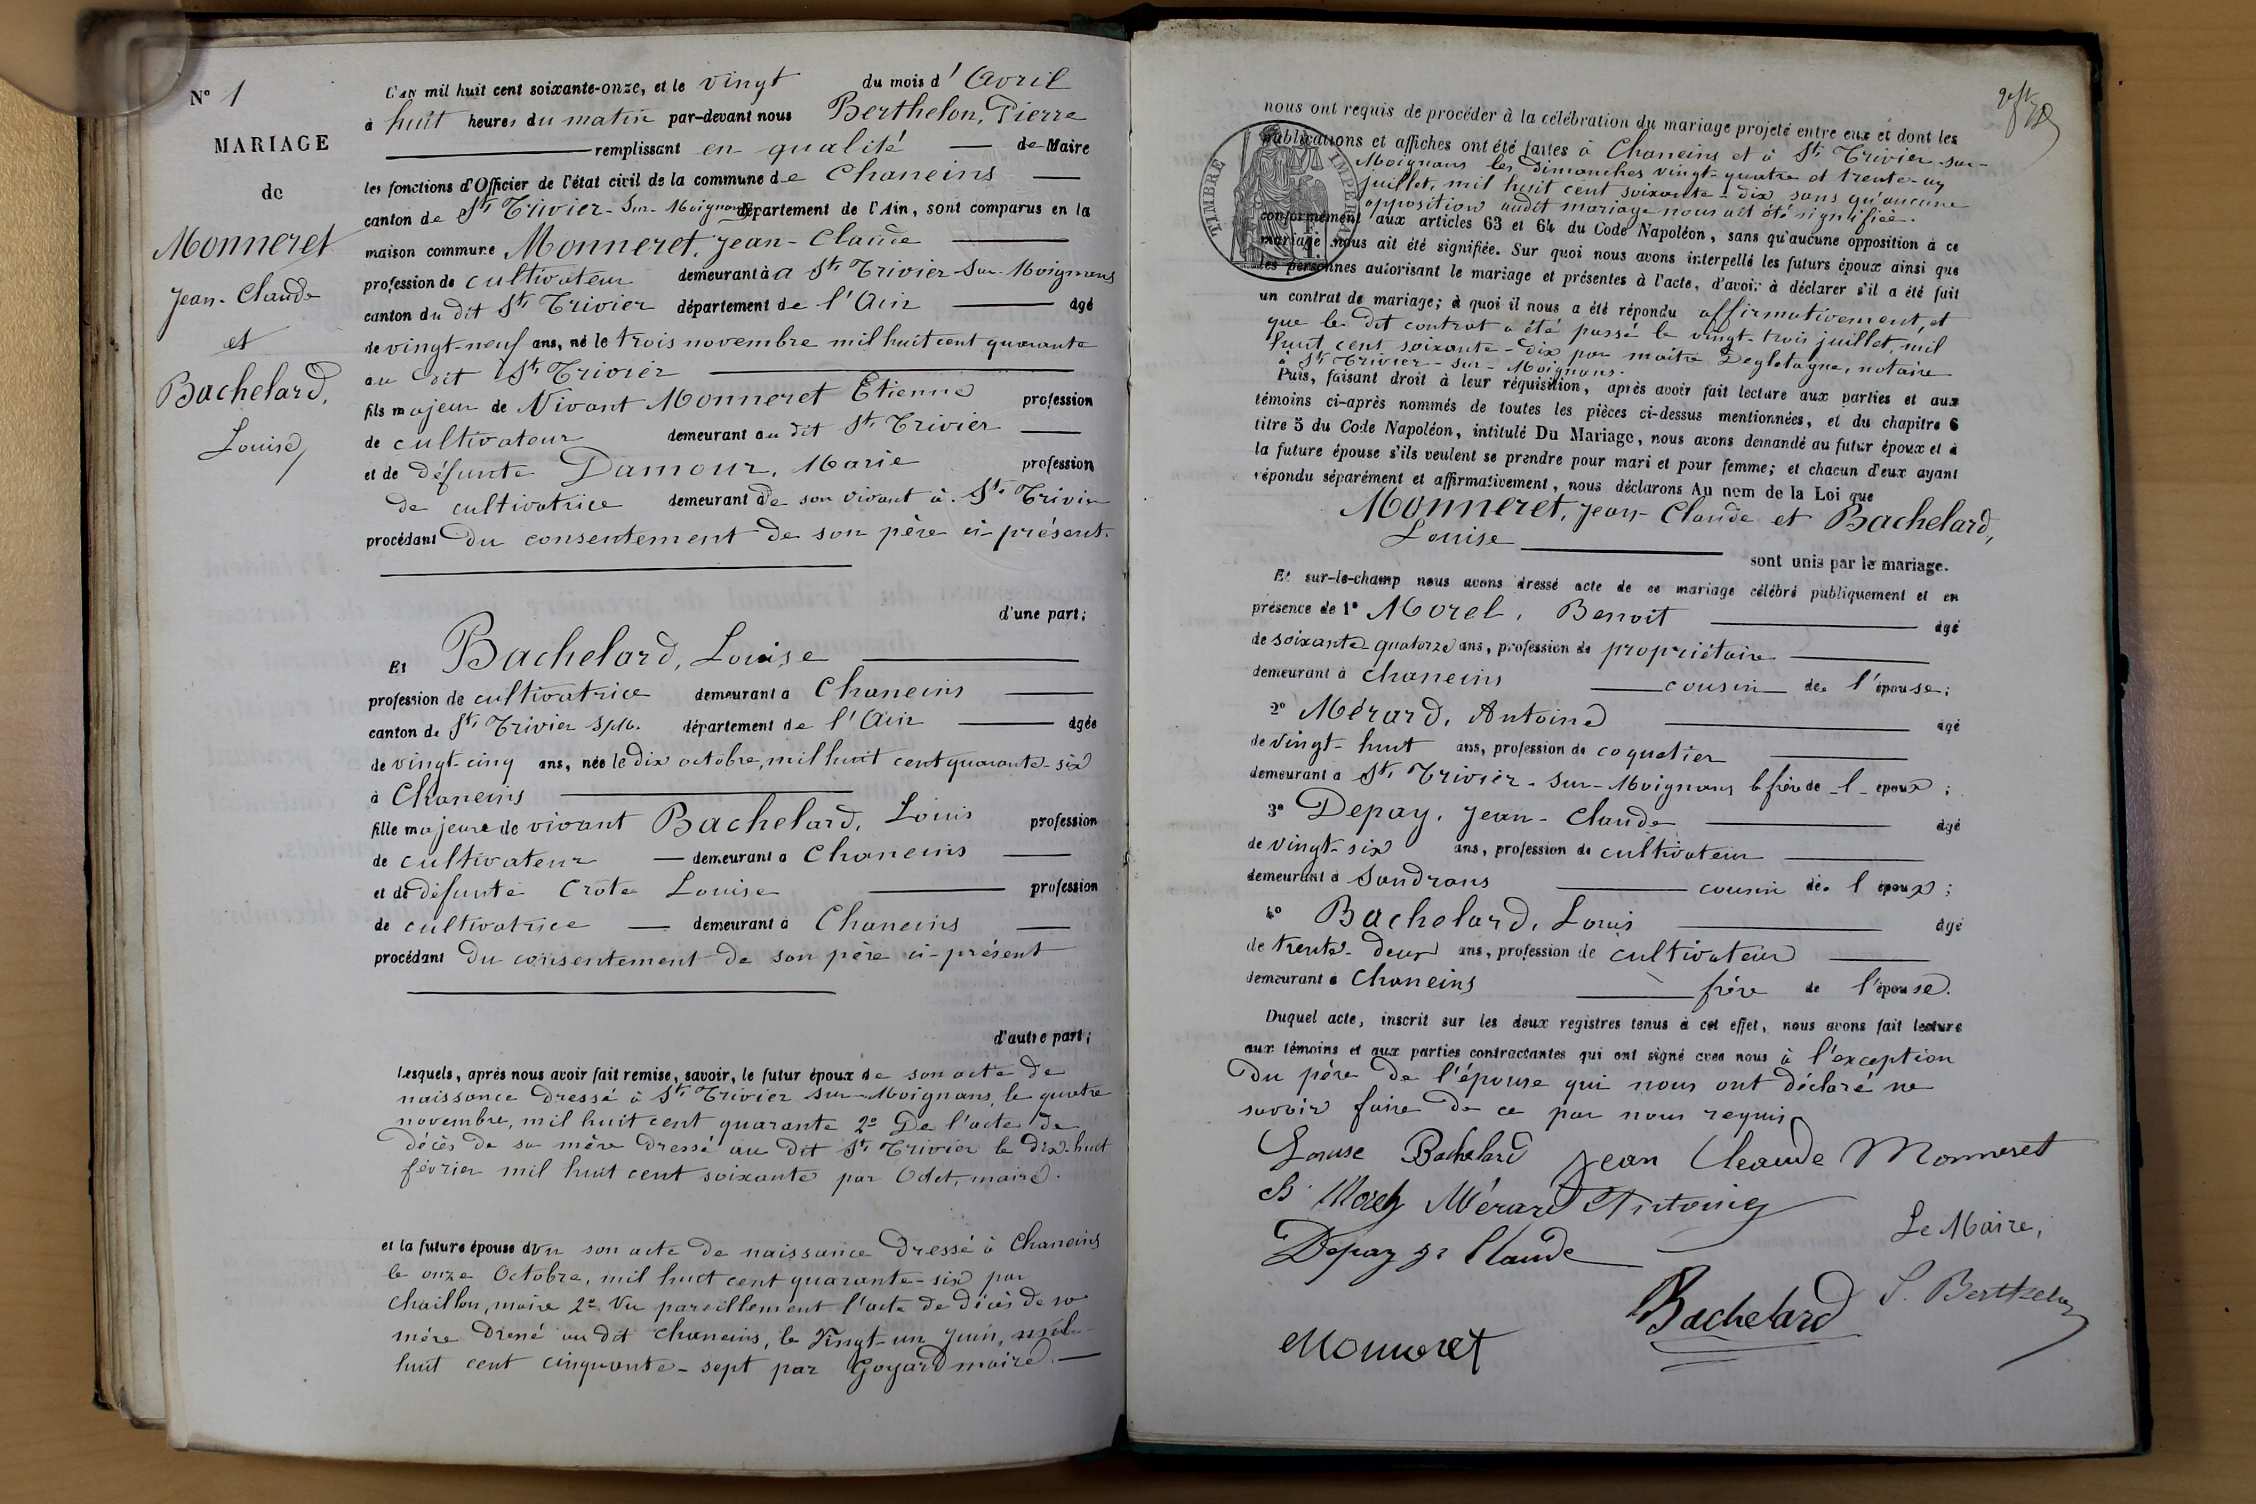 N° 1
MARIAGE
de
Monneret
Jean-Claude
et
Bachelard,
Louise
L'AN mil huit cent soixante-onze, et le vingt du mois d'Avril
à huit heures du matin par-devant nous Berthelon, Pierre
remplissant en qualité de Maire
les fonctions d'Officier de l'état civil de la commune de Chaneins
canton de St Trivier-Sur-Moignans département de l'Ain, sont comparus en la
maison commune Monneret, Jean-Claude
profession de cultivateur demeurant à a St Trivier-Sur-Moignans
canton du dit St Trivier département de l'Ain âgé
de vingt-neuf ans, né le trois novembre mil huit cent quarante
au dit St Trivier
fils majeur de Vivant Monneret Etienne profession
de cultivateur demeurant au dit St Trivier
et de défunte Damour, Marie profession
de cultivatrice demeurant à de son vivant à St Trivier
procédant du consentement de son père ci-présent.
d'une part;
Et Bachelard, Louise
profession de cultivatrice demeurant à Chaneins
canton de St Trivier S/M. département de l'Ain âgée
de vingt-cinq ans, née le dix octobre, mil huit cent quarante-six
à Chaneins
fille majeure de vivant Bachelard, Louis profession
de cultivateur demeurant à Chaneins
et de défunte Crote Louise profession
de cultivatrice demeurant à Chaneins
procédant du consentement de son père ci-présent
d'autre part;
Lesquels, après nous avoir fait remise, savoir, le futur époux de son acte de
naissance dressé à St Trivier sur-Moignans, le quatre
novembre, mil huit cent quarante 2° De l'acte de
décès de sa mère dressé au dit St Trivier le dix-huit
février mil huit cent soixante par Odet, maire.
et la future épouse d'un son acte de naissance dressé à Chaneins
le onze Octobre, mil huit cent quarante-six par
Chaillon, maire 2° Vu pareillement l'acte de décès de sa
mère dressé au dit Chaneins, le Vingt-un Juin, mil
huit cent cinquante-sept par Goyard maire.
nous ont requis de procéder à la célébration du mariage projeté entre eux et dont les
publications et affiches ont été faites à Chaneins et à St Trivier-sur-
Moignans les Dimanches vingt-quatre et trente-un
juillet, mil huit cent soixante-dix, sans qu'aucune
opposition audit mariage nous ait été signifiée.
TIMBRE IMPÉRIAL
conformément aux articles 63 et 64 du Code Napoléon, sans qu'aucune opposition à ce
mariage nous ait été signifiée. Sur quoi nous avons interpellé les futurs époux ainsi que
les personnes autorisant le mariage et présentes à l'acte, d'avoir à déclarer s'il a été fait
un contrat de mariage; à quoi il nous a été répondu affirmativement, et
que le dit contrat a été passé le vingt-trois juillet, mil
huit cent soixante-dix par maître Degletagne, notaire
à St Trivier-sur-Moignans.
Puis, faisant droit à leur réquisition, après avoir fait lecture aux parties et aux
témoins ci-après nommés de toutes les pièces ci-dessus mentionnées, et du chapitre 6
titre 5 du Code Napoléon, intitulé Du Mariage, nous avons demandé au futur époux et à
la future épouse s'ils veulent se prendre pour mari et pour femme; et chacun d'eux ayant
répondu séparément et affirmativement, nous déclarons Au nom de la Loi que
Monneret, Jean-Claude et Bachelard,
Louise
sont unis par le mariage.
Et sur-le-champ nous avons dressé acte de ce mariage célébré publiquement et en
présence de 1° Morel, Benoit âgé
de soixante quatorze ans, profession de propriétaire
demeurant à Chaneins cousin de l'épouse;
2° Mérard, Antoine âgé
de vingt-huit ans, profession de coquetier
demeurant à St Trivier-sur-Moignans b frère de l'époux;
3° Depay, Jean-Claude âgé
de vingt-six ans, profession de cultivateur
demeurant à Sandrans cousin de l'époux;
4° Bachelard, Louis âgé
de trente-deux ans, profession de cultivateur
demeurant à Chaneins frère de l'épouse.
Duquel acte, inscrit sur les deux registres tenus à cet effet, nous avons fait lecture
aux témoins et aux parties contractantes qui ont signé avec nous à l'exception
du père de l'épouse qui nous ont déclaré ne
savoir faire de ce par nous requis
Louise Bachelard Jean Cleaude Monneret
B. Morel Mérard Antoine
Le Maire,
Depay Jn Claude
Bachelard P. Berthelon
Monneret